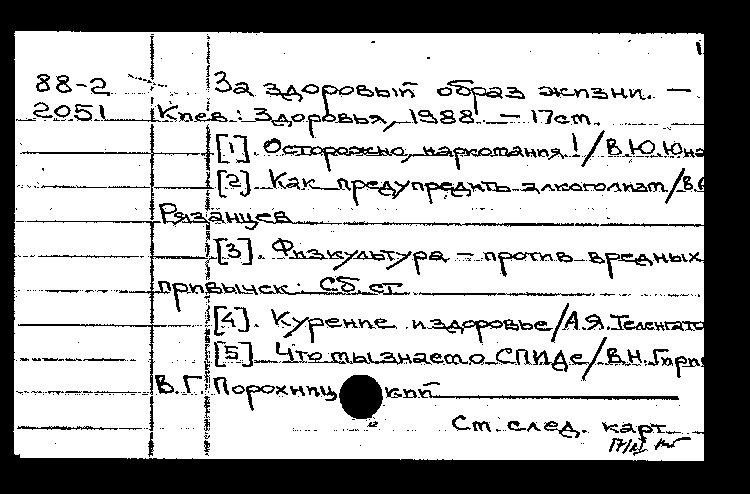 88-2 За здоровый образ жизни. —
2051 Киев: Здоровья, 1988. — 17см.
[1]. Осторожно, наркомания! / В.Ю.Юна
[2]. Как предупредить алкоголизм / В.
Рязанцев
[3]. Физкультура – против вредных
привычек: Сб. ст.
[4]. Курение и здоровье / А.Я.
[5]. Что ты знаешь о СПИДе / В.Н.
В.Г. Порохниц кий
См. след. карт.